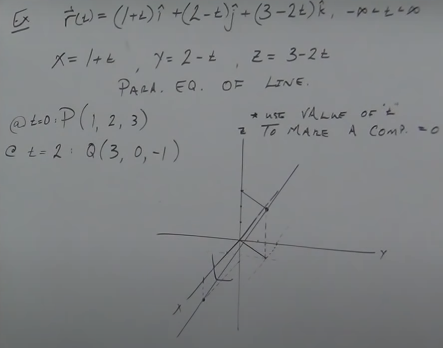 Ex r⃗(t) = (1+t)î + (2-t)ĵ + (3-2t)k̂, -∞ < t < ∞
x = 1+t , y = 2-t , z = 3-2t
PARA. EQ. OF LINE.
@ t=0: P(1, 2, 3)
@ t=2: Q(3, 0, -1)
* USE VALUE OF "t"
TO MAKE A COMP. = 0
z
y
x